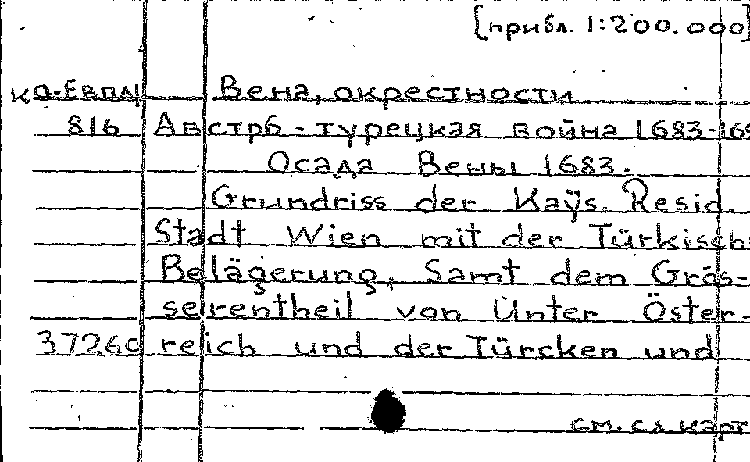 [прибл. 1:200.000]
КО-Евпа Вена, окрестности
816 Австрб-турецкая война 1683-169
Осада Вены 1683.
Grundriss der Kaÿs. Resid.
Stadt Wien mit der Türkisch:
Belägerung, Samt dem Grös-
serentheil von Unter Öster-
37260 reich und der Türcken und
см. сл. карт